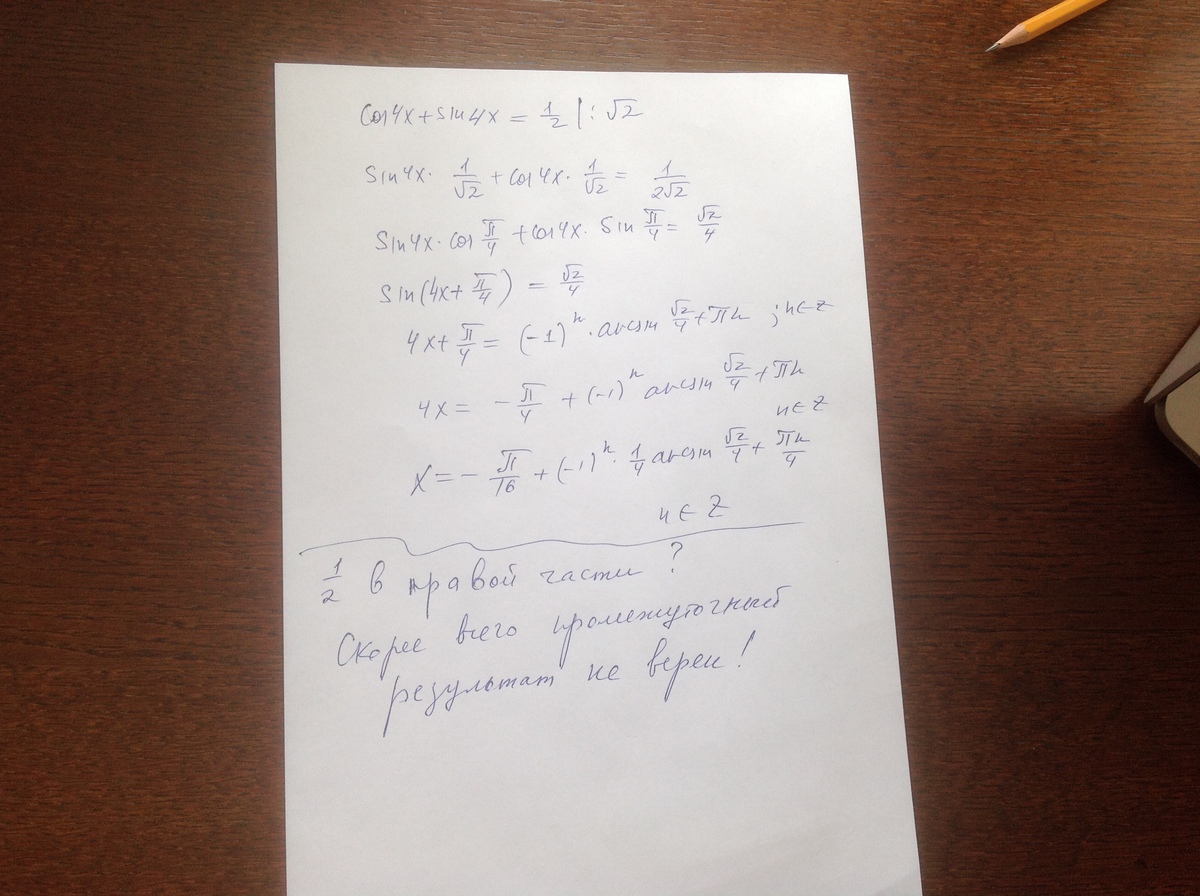 cos4x + sin4x = 1/2 | : √2
sin4x · 1/√2 + cos4x · 1/√2 = 1/2√2
sin4x · cos π/4 + cos4x · sin π/4 = √2/4
sin(4x + π/4) = √2/4
4x + π/4 = (-1)ⁿ · arcsin √2/4 + πn ; n ∈ Z
4x = - π/4 + (-1)ⁿ arcsin √2/4 + πn
n ∈ Z
x = - π/16 + (-1)ⁿ · 1/4 arcsin √2/4 + πn/4
n ∈ Z
1/2 в правой части ?
Скорее всего промежуточный
результат не верен!